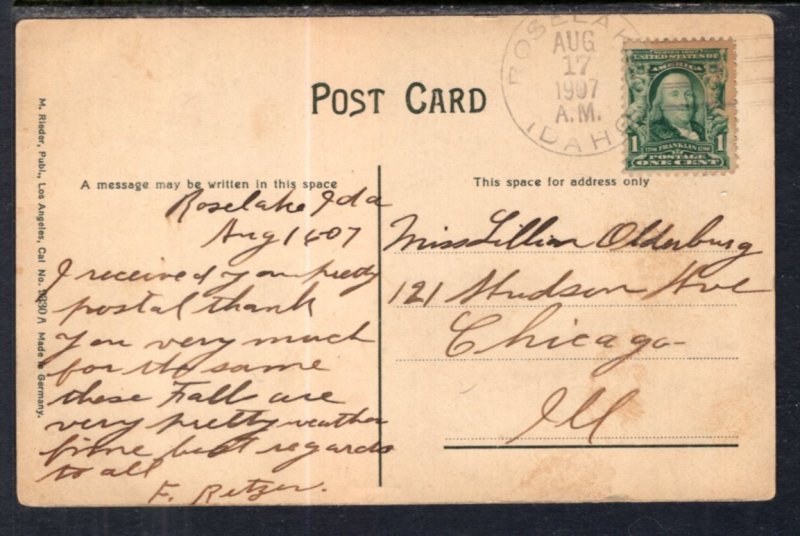 POST CARD
ROSELAKE
AUG
17
1907
A.M.
IDAHO
UNITED STATES OF
AMERICA
1 FRANKLIN 1
POSTAGE
ONE CENT
A message may be written in this space
This space for address only
M. Rieder, Publ., Los Angeles, Cal No. 3330 A Made in Germany.
Roselake Ida
Aug 16 07
I received your pretty
postal thank
you very much
for the same
these Falls are
very pretty weather
fine best regards
to all
F. Retzer.
Miss Lillian Oldenburg
121 Hudson Ave
Chicago
Ill